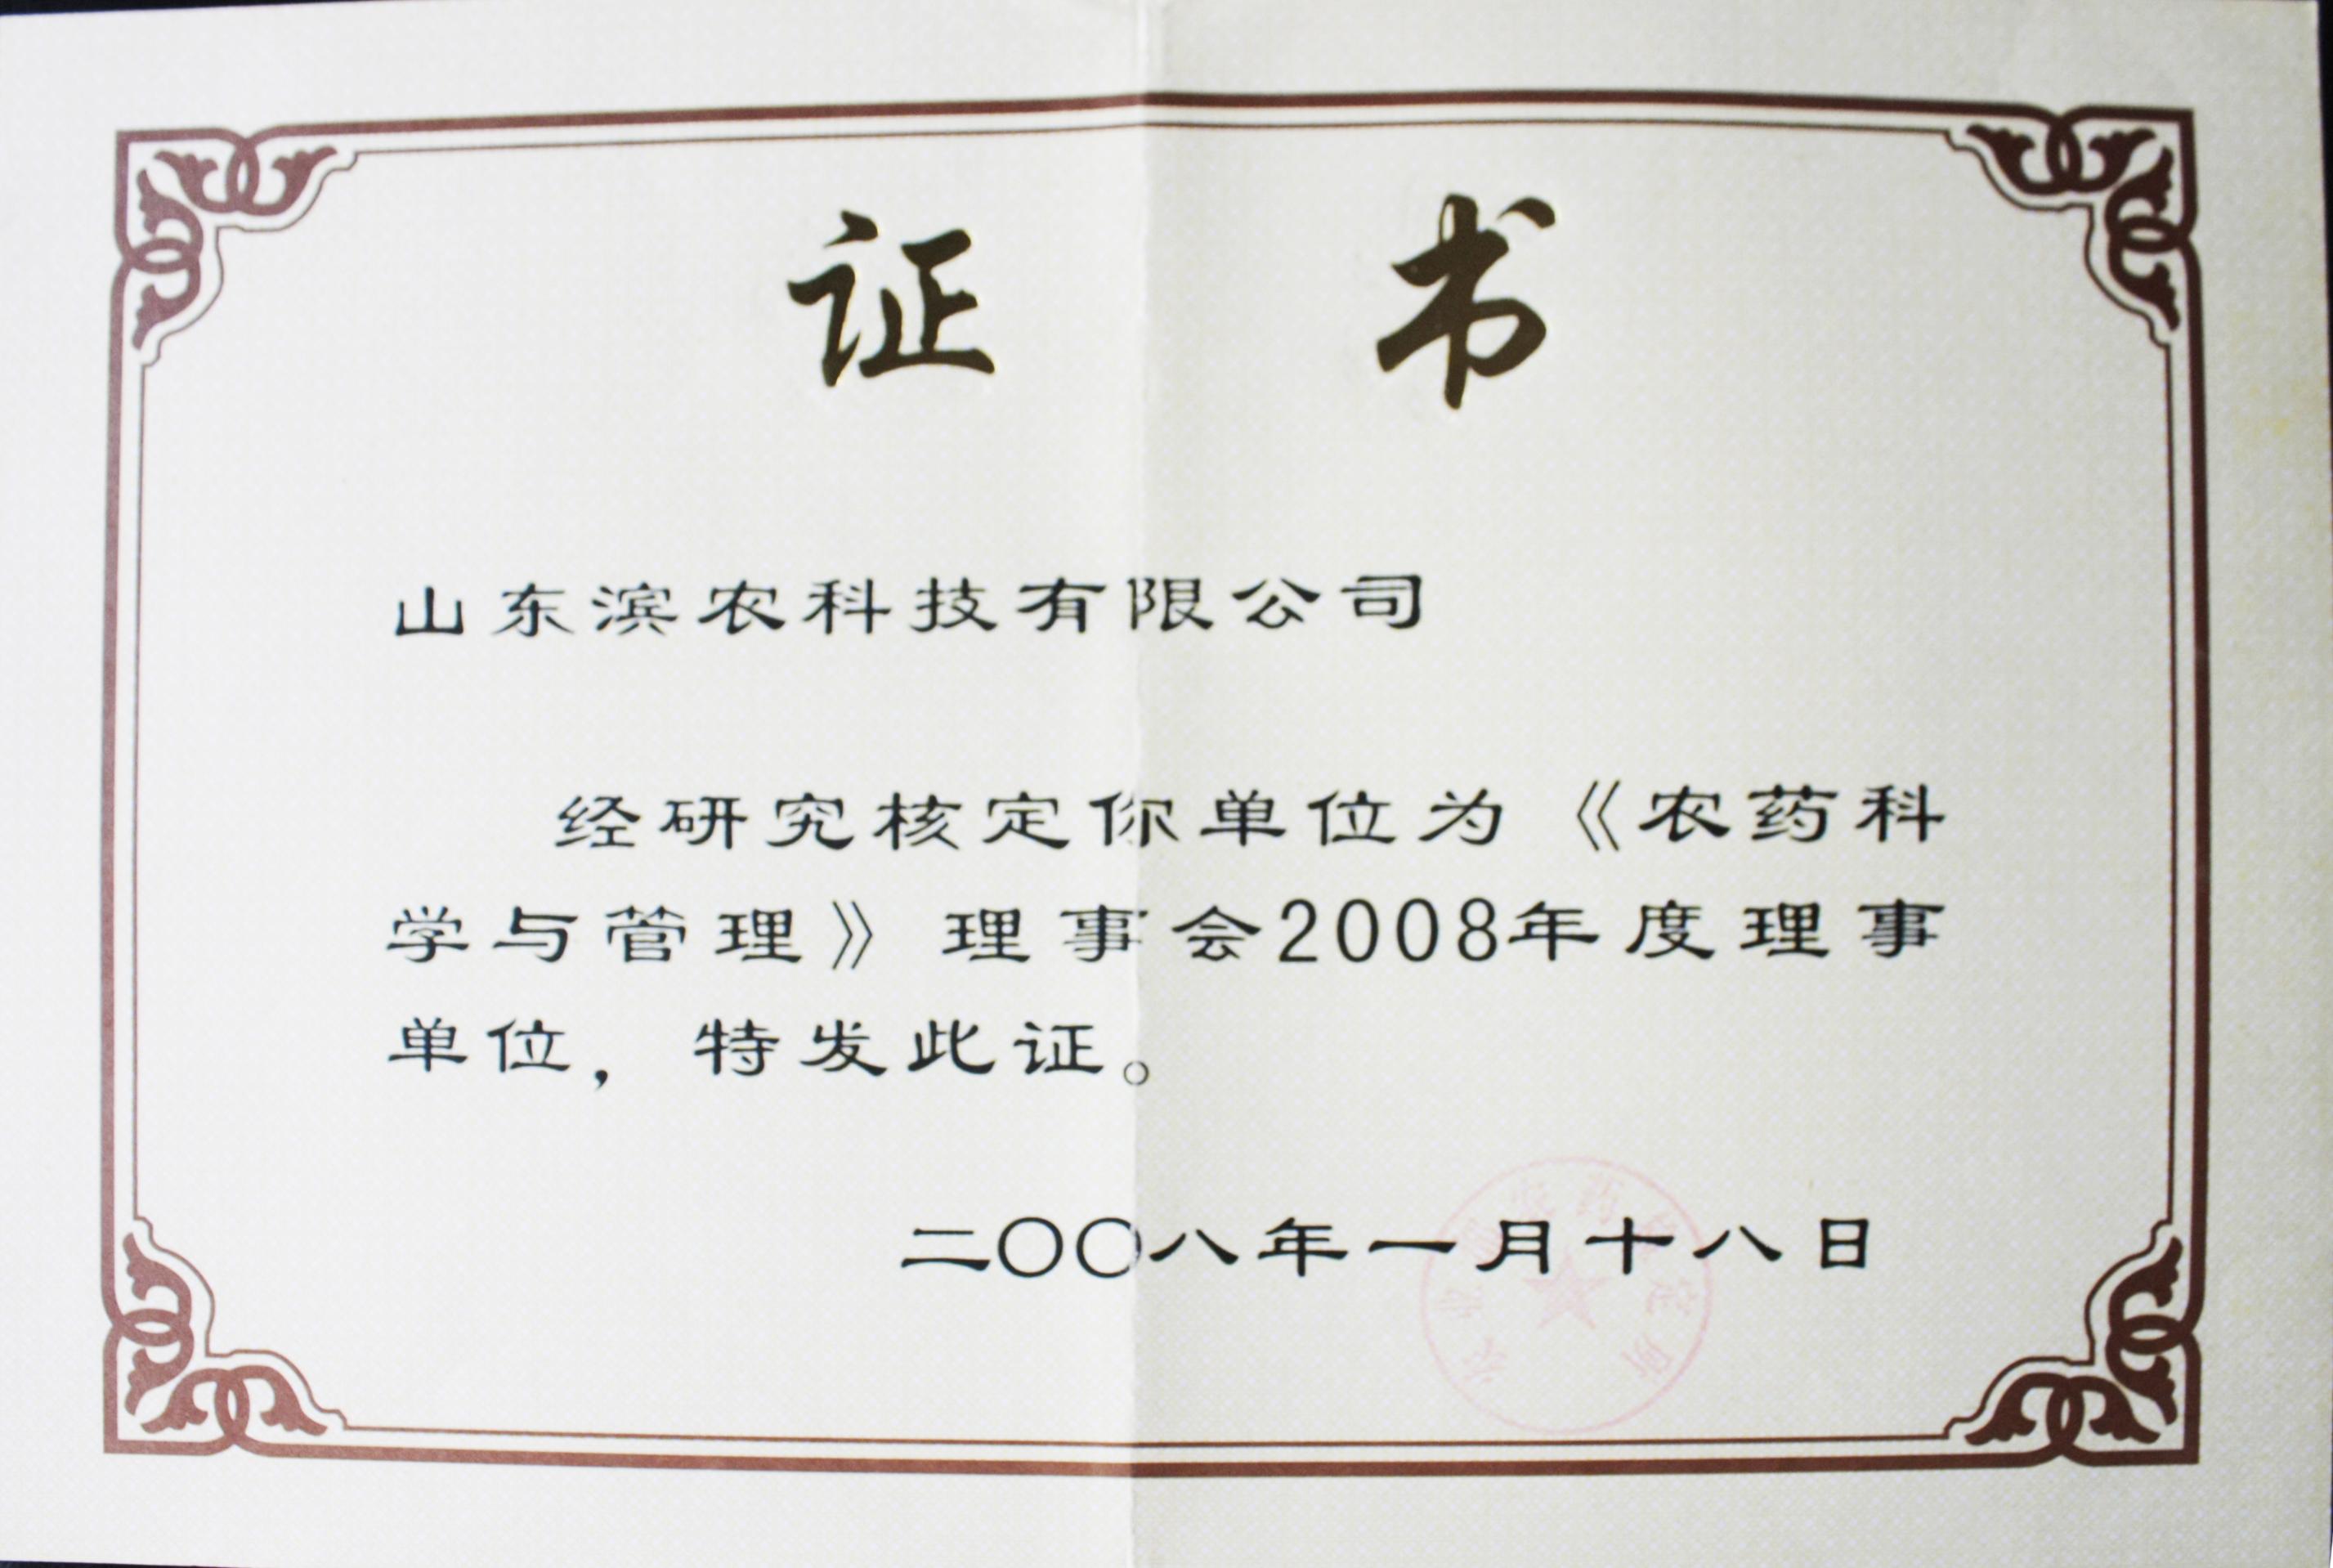 证 书
山东滨农科技有限公司
经研究核定你单位为《农药科
学与管理》理事会2008年度理事
单位，特发此证。
二〇〇八年一月十八日